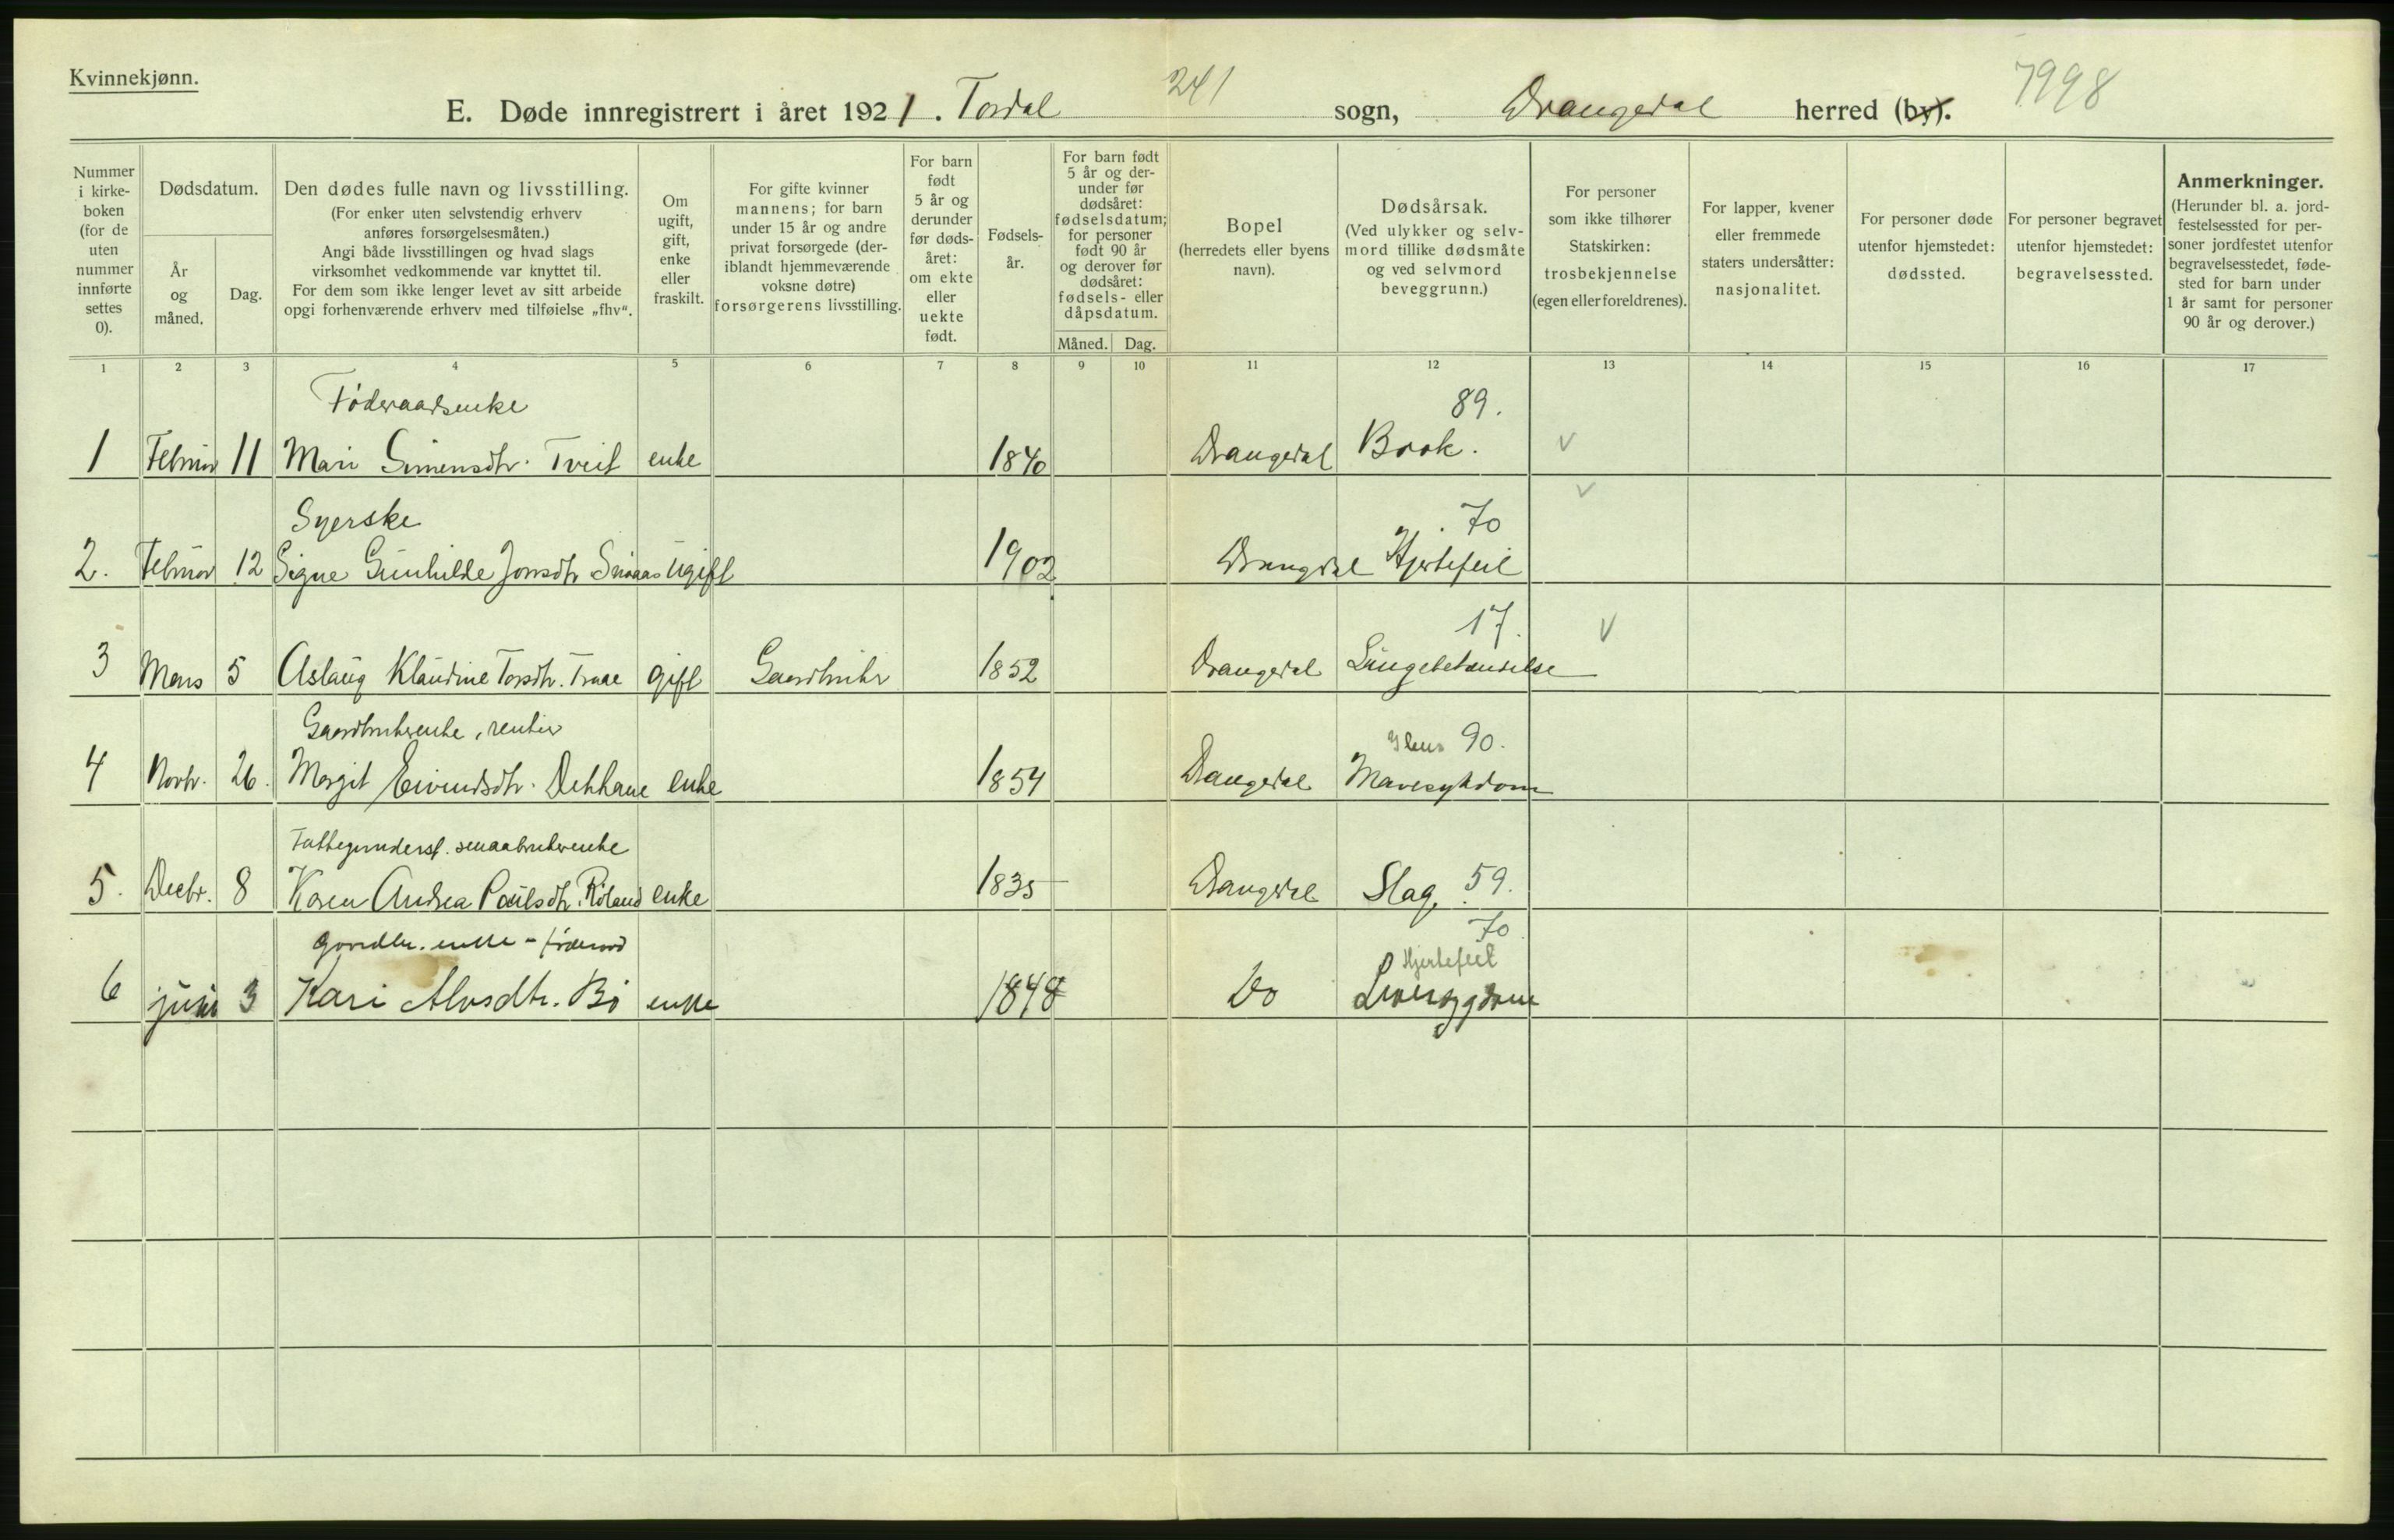 Kvinnekjønn.
241
7998
E. Døde innregistrert i året 1921. Tordal sogn, Drangedal herred (by).
Nummer i kirke-boken (for de uten nummer innførte settes 0).
Dødsdatum.
År og måned.
Dag.
Den dødes fulle navn og livsstilling.
(For enker uten selvstendig erhverv anføres forsørgelsesmåten.)
Angi både livsstillingen og hvad slags virksomhet vedkommende var knyttet til.
For dem som ikke lenger levet av sitt arbeide opgi forhenværende erhverv med tilføielse „fhv“.
Om ugift, gift, enke eller fraskilt.
For gifte kvinner mannens; for barn under 15 år og andre privat forsørgede (der-iblandt hjemmeværende voksne døtre) forsørgerens livsstilling.
For barn født 5 år og derunder før døds-året: om ekte eller uekte født.
Fødsels-år.
For barn født 5 år og der-under før dødsåret: fødselsdatum; for personer født 90 år og derover før dødsåret: fødsels- eller dåpsdatum.
Måned.
Dag.
Bopel
(herredets eller byens navn).
Dødsårsak.
(Ved ulykker og selv-mord tillike dødsmåte og ved selvmord beveggrunn.)
For personer som ikke tilhører Statskirken: trosbekjennelse (egen eller foreldrenes).
For lapper, kvener eller fremmede staters undersåtter: nasjonalitet.
For personer døde utenfor hjemstedet: dødssted.
For personer begravet utenfor hjemstedet: begravelsessted.
Anmerkninger.
(Herunder bl. a. jord-festelsessted for per-soner jordfestet utenfor begravelsesstedet, føde-sted for barn under 1 år samt for personer 90 år og derover.)
1 2 3 4 5 6 7 8 9 10 11 12 13 14 15 16 17
Føderaadsenke 89.
1 Februar 11 Mari Simensdtr. Tveit enke 1840 Drangedal
Syerske 70
2. Februar 12 Signe Gunhilde Jonsdtr ugift 1902 Drangedal Hjertefeil
17.
3 Mars 5 Aslaug Klaudine Torsdtr. gift Gaardbruker 1852 Drangedal Lungebetændelse
Gaardbrukerenke, rentier 90.
4 Novbr. 26. Margit Eivindsdtr. enke 1854 Drangedal Mavesykdom
smaabrukerenke
5. Decbr. 8 Karen Andrea Paulsdtr. enke 1835 Drangedal Slag. 59.
Gaardbr. enke - føderaad 70
Hjertefeil
6 juni 3 Kari Alvsdtr. Bø enke 1848 Do